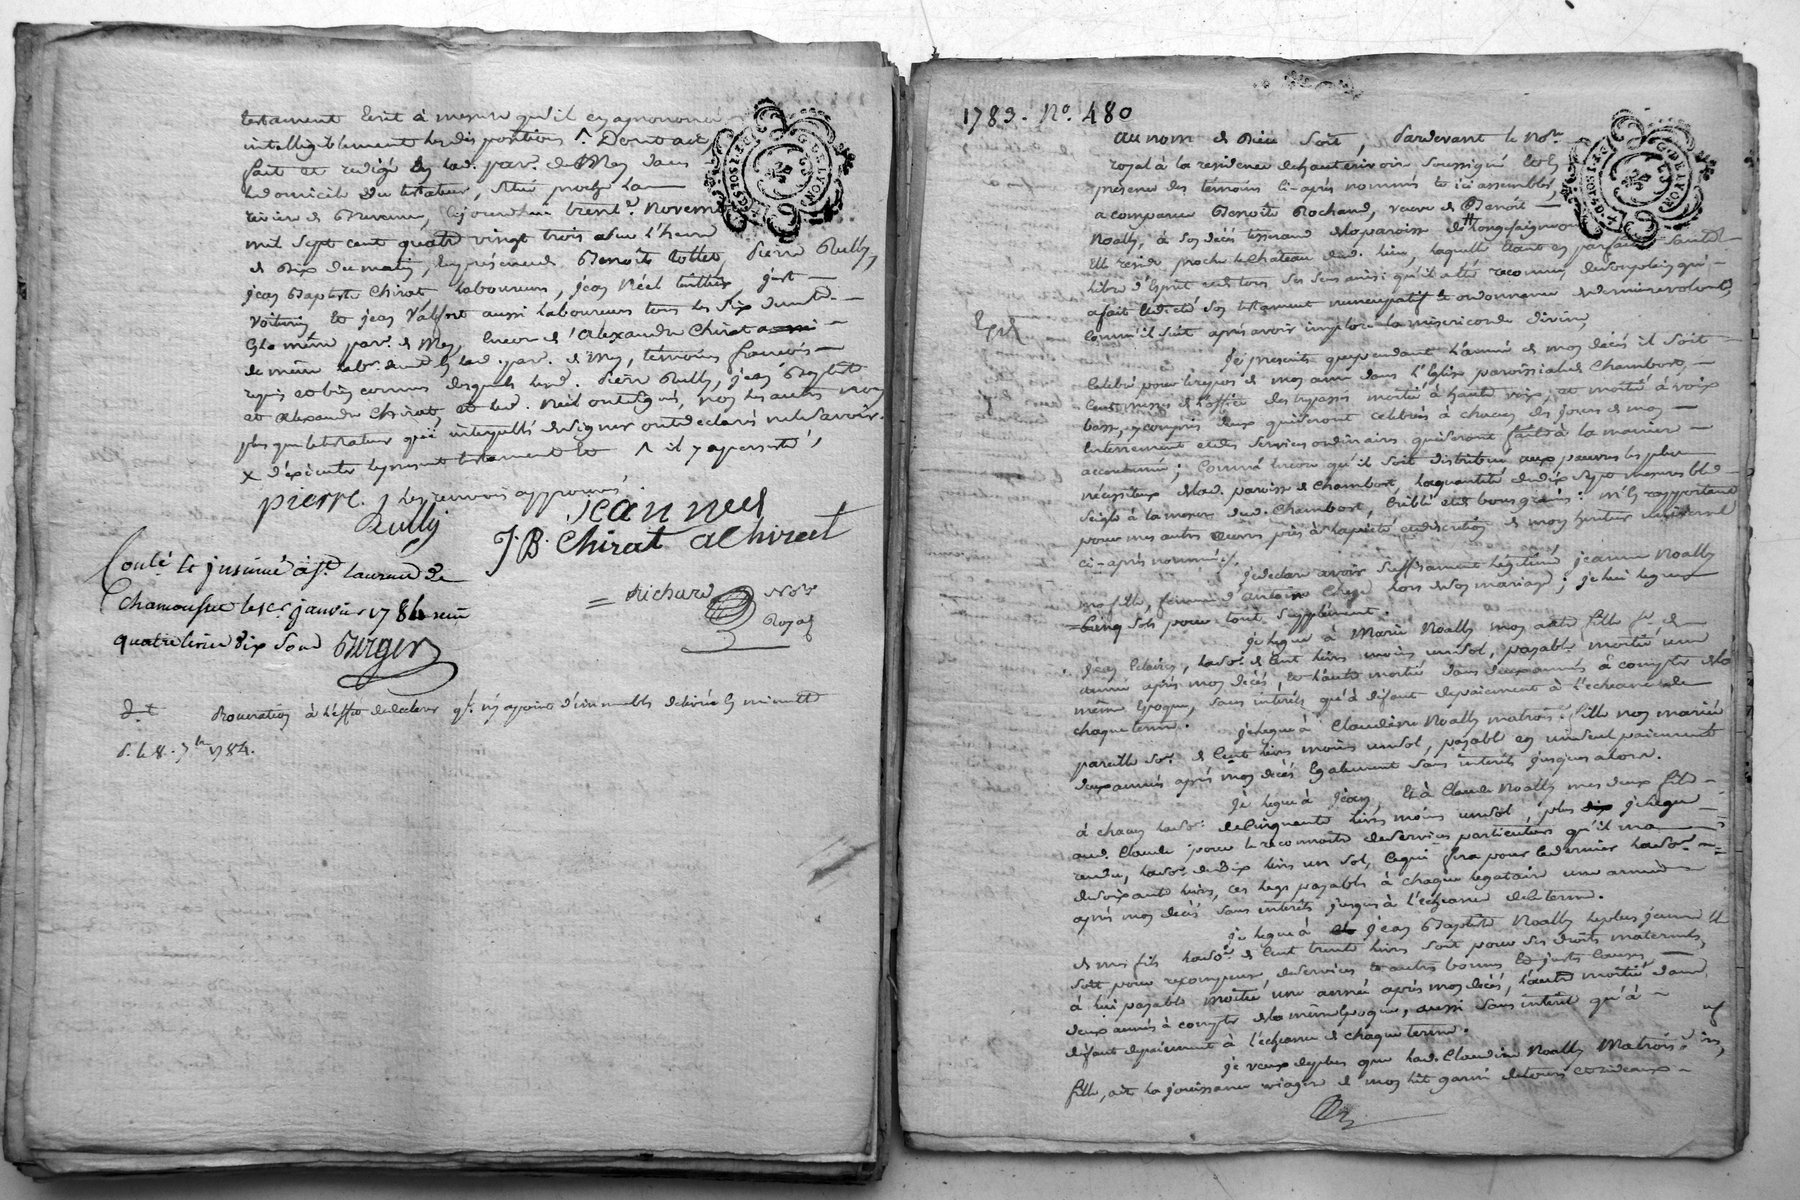 testament Ecrit à mesure qu'il en a prononcé
intelligiblement les dispositions ^. Dont acte
fait et redigé En lad. par. de Mey dans
le domicile du testateur, situé proche la
riviere de Brevenne, Cejourdhui trente Novembre
mil sept cent quatre vingt trois asur l'heure
de Dix du matin, En présence de Benoît Pierre Rully,
jean Baptiste Chirat laboureurs, jean Néel tailleur, just
Voiturin Et jean Valfort aussi laboureurs tous les Six dund.
En la même par. de Mey, Encor de Alexandre Chirat
de même lab. demt. En lad. par. de Mey, témoins francois
requis et bien connus desquels led. Pierre Rully, jean Baptiste
et alexandre Chirat et led. Néel ont Signé, non les autres non
plus que le testateur qui interpellés de Signer ont declarés ne le Savoir.
X d'exécuter le present testament et ^ il y a persisté,
les renvois approuvés
pierre Rully
jean neel
J. B. Chirat achirat
= Richard Nore
Royal
Conlé Et jnsinué à St. Laurent De
Chamousset le 1er janvier 1784 reçu
quatre livres dix Sous Berger
d.t Procuration à l'effet de declarer q'il n'y a point d'immeubles delivrée En minutte
d. le 8. 7bre 1784.
1783. No. 480
Au nom de Dieu Soit, Pardevant le Nore
royal à la residence de hauterivoire Soussigné Et En
présence des témoins Ci-après nommés Et ici assemblés,
a comparue Benoîte Rochand, veuve de Benoît
Noally, à Son décès tisserand de la paroisse de Longesaigne
Elle reside proche le Chateau dud. lieu, laquelle Etant En parfaite Santé
libre d'Esprit et de tous Ses Sens ainsi qu'il a été reconnu, de Son plein gré
a fait Et dicté Son testament nuncupatif Et ordonnance de derniere volonté
Comme il Suit après avoir imploré la misericorde divine,
Expé
Je prescrits que pendant l'année de mon décès il Soit
Celebré pour le repos de mon ame dans l'Eglise paroissiale de Chambost,
Cent messes de l'office des trepassés moitié à haute voix, et moitié à voix
basse, y compris deux qui Seront celebrées à chacun des jours de mon
Enterrement et des Services ordinaires qui Seront faits à la maniere
accoutumée; Comme Encor qu'il Soit distribué aux pauvres les plus
nécessiteux de lad. paroisse de Chambost, la quantité de dix Sept mesures bled
Seigle à la mesure dud. Chambost, Criblé et de bons grains: m'En rapportant
pour mes autres œuvres pies à la pieté et discrétion de mon heritier universel
ci-après nommé:/.
Je declare avoir Suffisament légitimé jeanne Noally
ma fille, femme d'Antoine lors de Son mariage; je lui legue
Cinq Sols pour tout Supplément.
Je legue à Marie Noally mon autre fille fe. de
jean la Sᵉ. de Cent livres moins un Sol, payable moitié une
année après mon décès, Et l'autre moitié dans deux années à compter de la
même Epoque, Sans intérêts qu'à défaut de paiement à l'échéance de
chaque terme.
Je legue à Claudine Noally matroisᵉ. fille non mariée
pareille Sᵉ. de Cent livres moins un Sol, payable En un Seul paiement
deux années après mon décès Egalement Sans intérêts jusques alors.
Je legue à Jean, Et à Claude Noally mes deux fils
à chacun la Sᵉ. de Cinquante livres moins un Sol, plus je legue
aud. Claude pour le reconnoitre de Services particuliers qu'il m'a
rendu, la Sᵉ. de Dix livres un Sol, Ce qui fera pour le dernier la Sᵉ.
de Soixante livres, ces legs payables à chaque legataire une année
après mon décès Sans intérêts jusqu'à l'échéance de le terme.
je legue à jean Baptiste Noally le plus jeune
de mes fils la Sᵉ. de Cent trente livres Soit pour Ses droits maternels,
Soit pour recompense de Services Et autres bonnes Et justes Causes
à lui payable moitié une année après mon décès, l'autre moitié dans
deux années à compter de la même Epoque, aussi Sans intérêt qu'à
défaut de paiement à l'échéance de chaque terme.
je veux de plus que lad. Claudine Noally Matroisᵉ.
fille, ait la jouissance viagere de mon lit garni de tours et rideaux